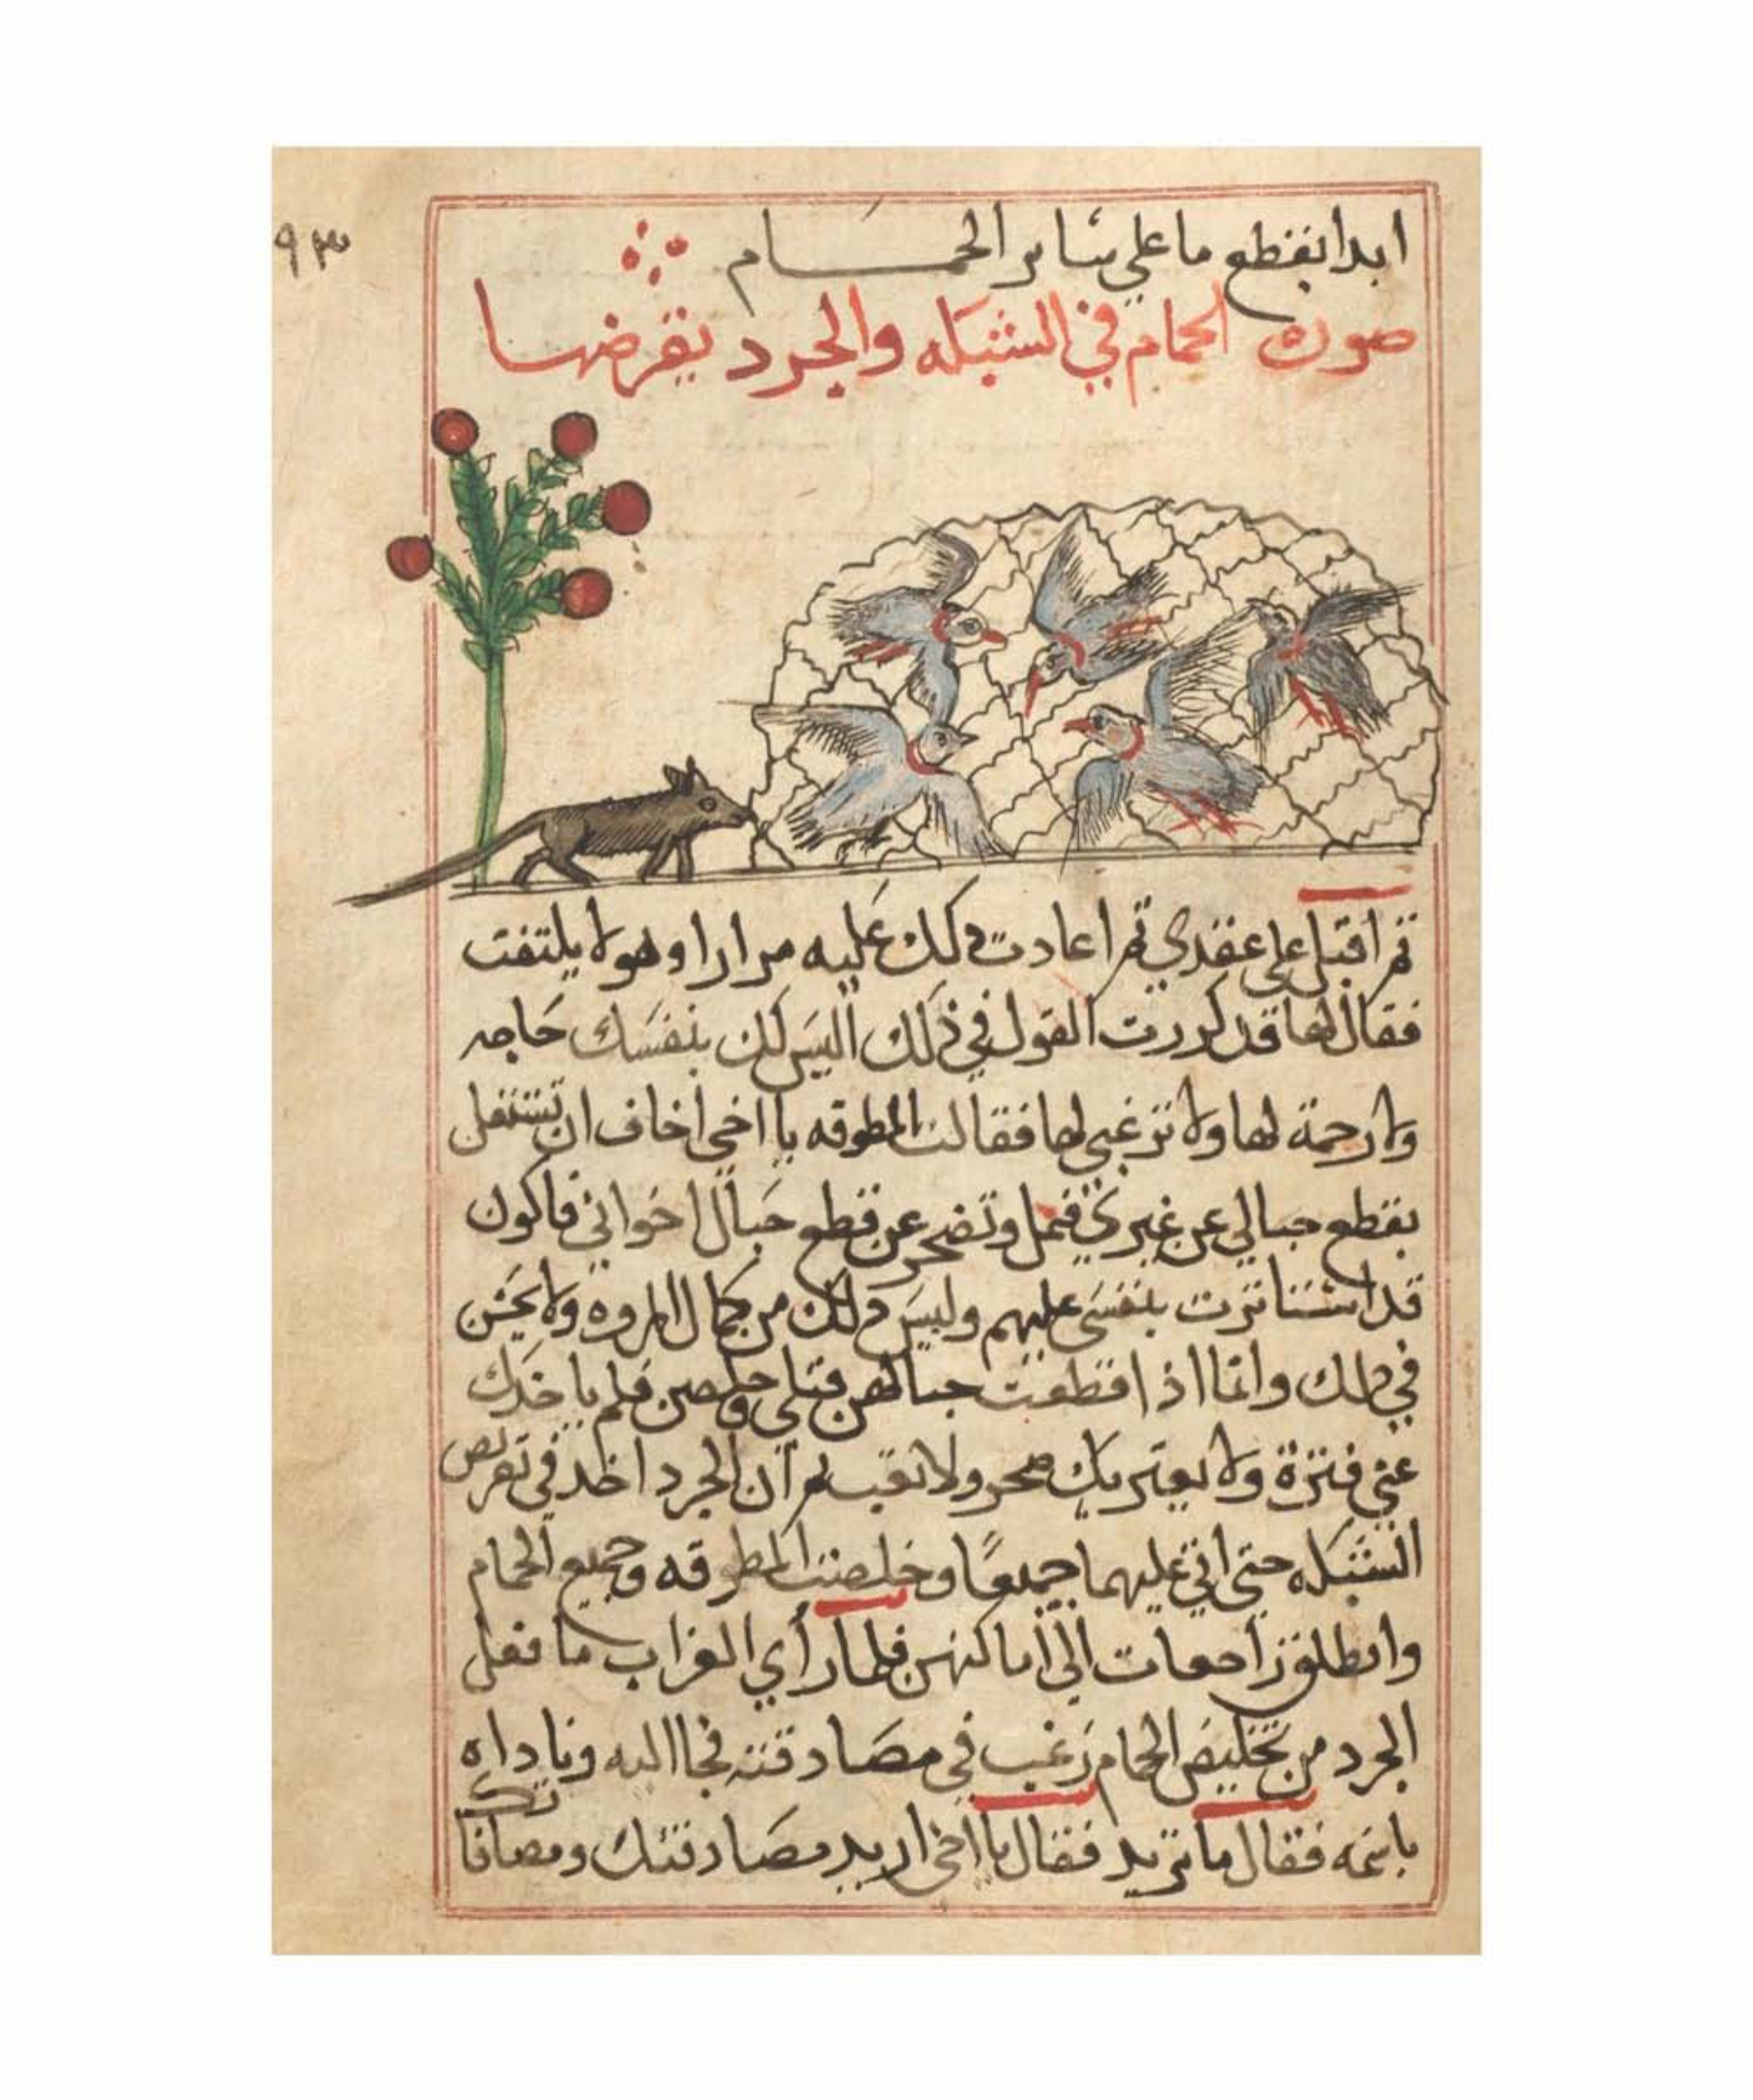 ٩٣
ابدا بقطع ما علي ساير الحمام
صورة الحمام في الشبكه والجرد يقرضها
ثم اقبل علي عقدي ثم اعادت ذلك عليه مرارا وهو لا يلتفت
فقال لها قد كررت القول في ذلك اليس لك بنفسك حاجه
ولا رحمة لها ولا ترغبي لها فقالت المطوقه يا اخي اخاف ان تشتغل
بقطع حبالي عن غيري فتمل وتضجر عن قطع حبال اخواني فاكون
قد استاثرت بنفسي عليهم وليس ذلك من كمال المروه ولا يحسن
في ذلك وانما اذا قطعت حبالهن قبلي وخلصن فلم ياخدك
عني فترة ولا يعتريك ضجر ولا تعب ثم ان الجرد اخد في تقريض
الشبكه حتي اتي عليهما جميعًا وخلصت المطوقه وجميع الحمام
وانطلقن راجعات الي اماكنهن فلما رأي الغراب ما فعل
الجرد من تخليص الحمام رغب في مصادقته فجا اليه وناداه
باسمه فقال ما تريد فقال يا اخي اريد مصادقتك ومصافا
تك